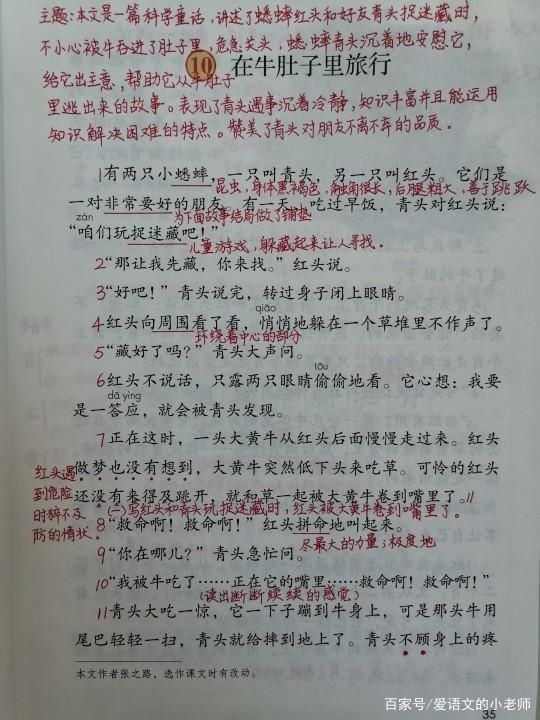 主题:本文是一篇科学童话,讲述了蟋蟀红头和好友青头捉迷藏时,
不小心被牛吞进了肚子里,危急关头,蟋蟀青头沉着地安慰它,
给它出主意,帮助它从牛肚子
10 在牛肚子里旅行
里逃出来的故事。表现了青头遇事沉着冷静,知识丰富并且能运用
知识解决困难的特点。赞美了青头对朋友不离不弃的品质。
1有两只小蟋蟀,一只叫青头,另一只叫红头。它们是
昆虫,身体黑褐色,触角很长,后腿粗大,善于跳跃
一对非常要好的朋友。有一天,吃过早饭,青头对红头说:
为下面故事结局做了铺垫
zán
“咱们玩捉迷藏吧!”
儿童游戏,躲藏起来让人寻找。
2“那让我先藏,你来找。”红头说。
3“好吧!”青头说完,转过身子闭上眼睛。
qiāo
4红头向周围看了看,悄悄地躲在一个草堆里不作声了。
环绕着中心的部分
5“藏好了吗?”青头大声问。
tōu
6红头不说话,只露两只眼睛偷偷地看。它心想:我要
dā yìng
是一答应,就会被青头发现。
7正在这时,一头大黄牛从红头后面慢慢走过来。红头
做梦也没有想到,大黄牛突然低下头来吃草。可怜的红头
还没有来得及跳开,就和草一起被大黄牛卷到嘴里了。
红头遇
到危险
时猝不及
防的情状。
(一)写红头和青头玩捉迷藏时,红头被大黄牛卷到嘴里了。
8“救命啊!救命啊!”红头拼命地叫起来。
尽最大的力量;极度地
9“你在哪儿?”青头急忙问。
10“我被牛吃了……正在它的嘴里……救命啊!救命啊!”
(读出断断续续的感觉)
11青头大吃一惊,它一下子蹦到牛身上,可是那头牛用
尾巴轻轻一扫,青头就给摔到地上了。青头不顾身上的疼
本文作者张之路,选作课文时有改动。
百家号/爱语文的小老师
35